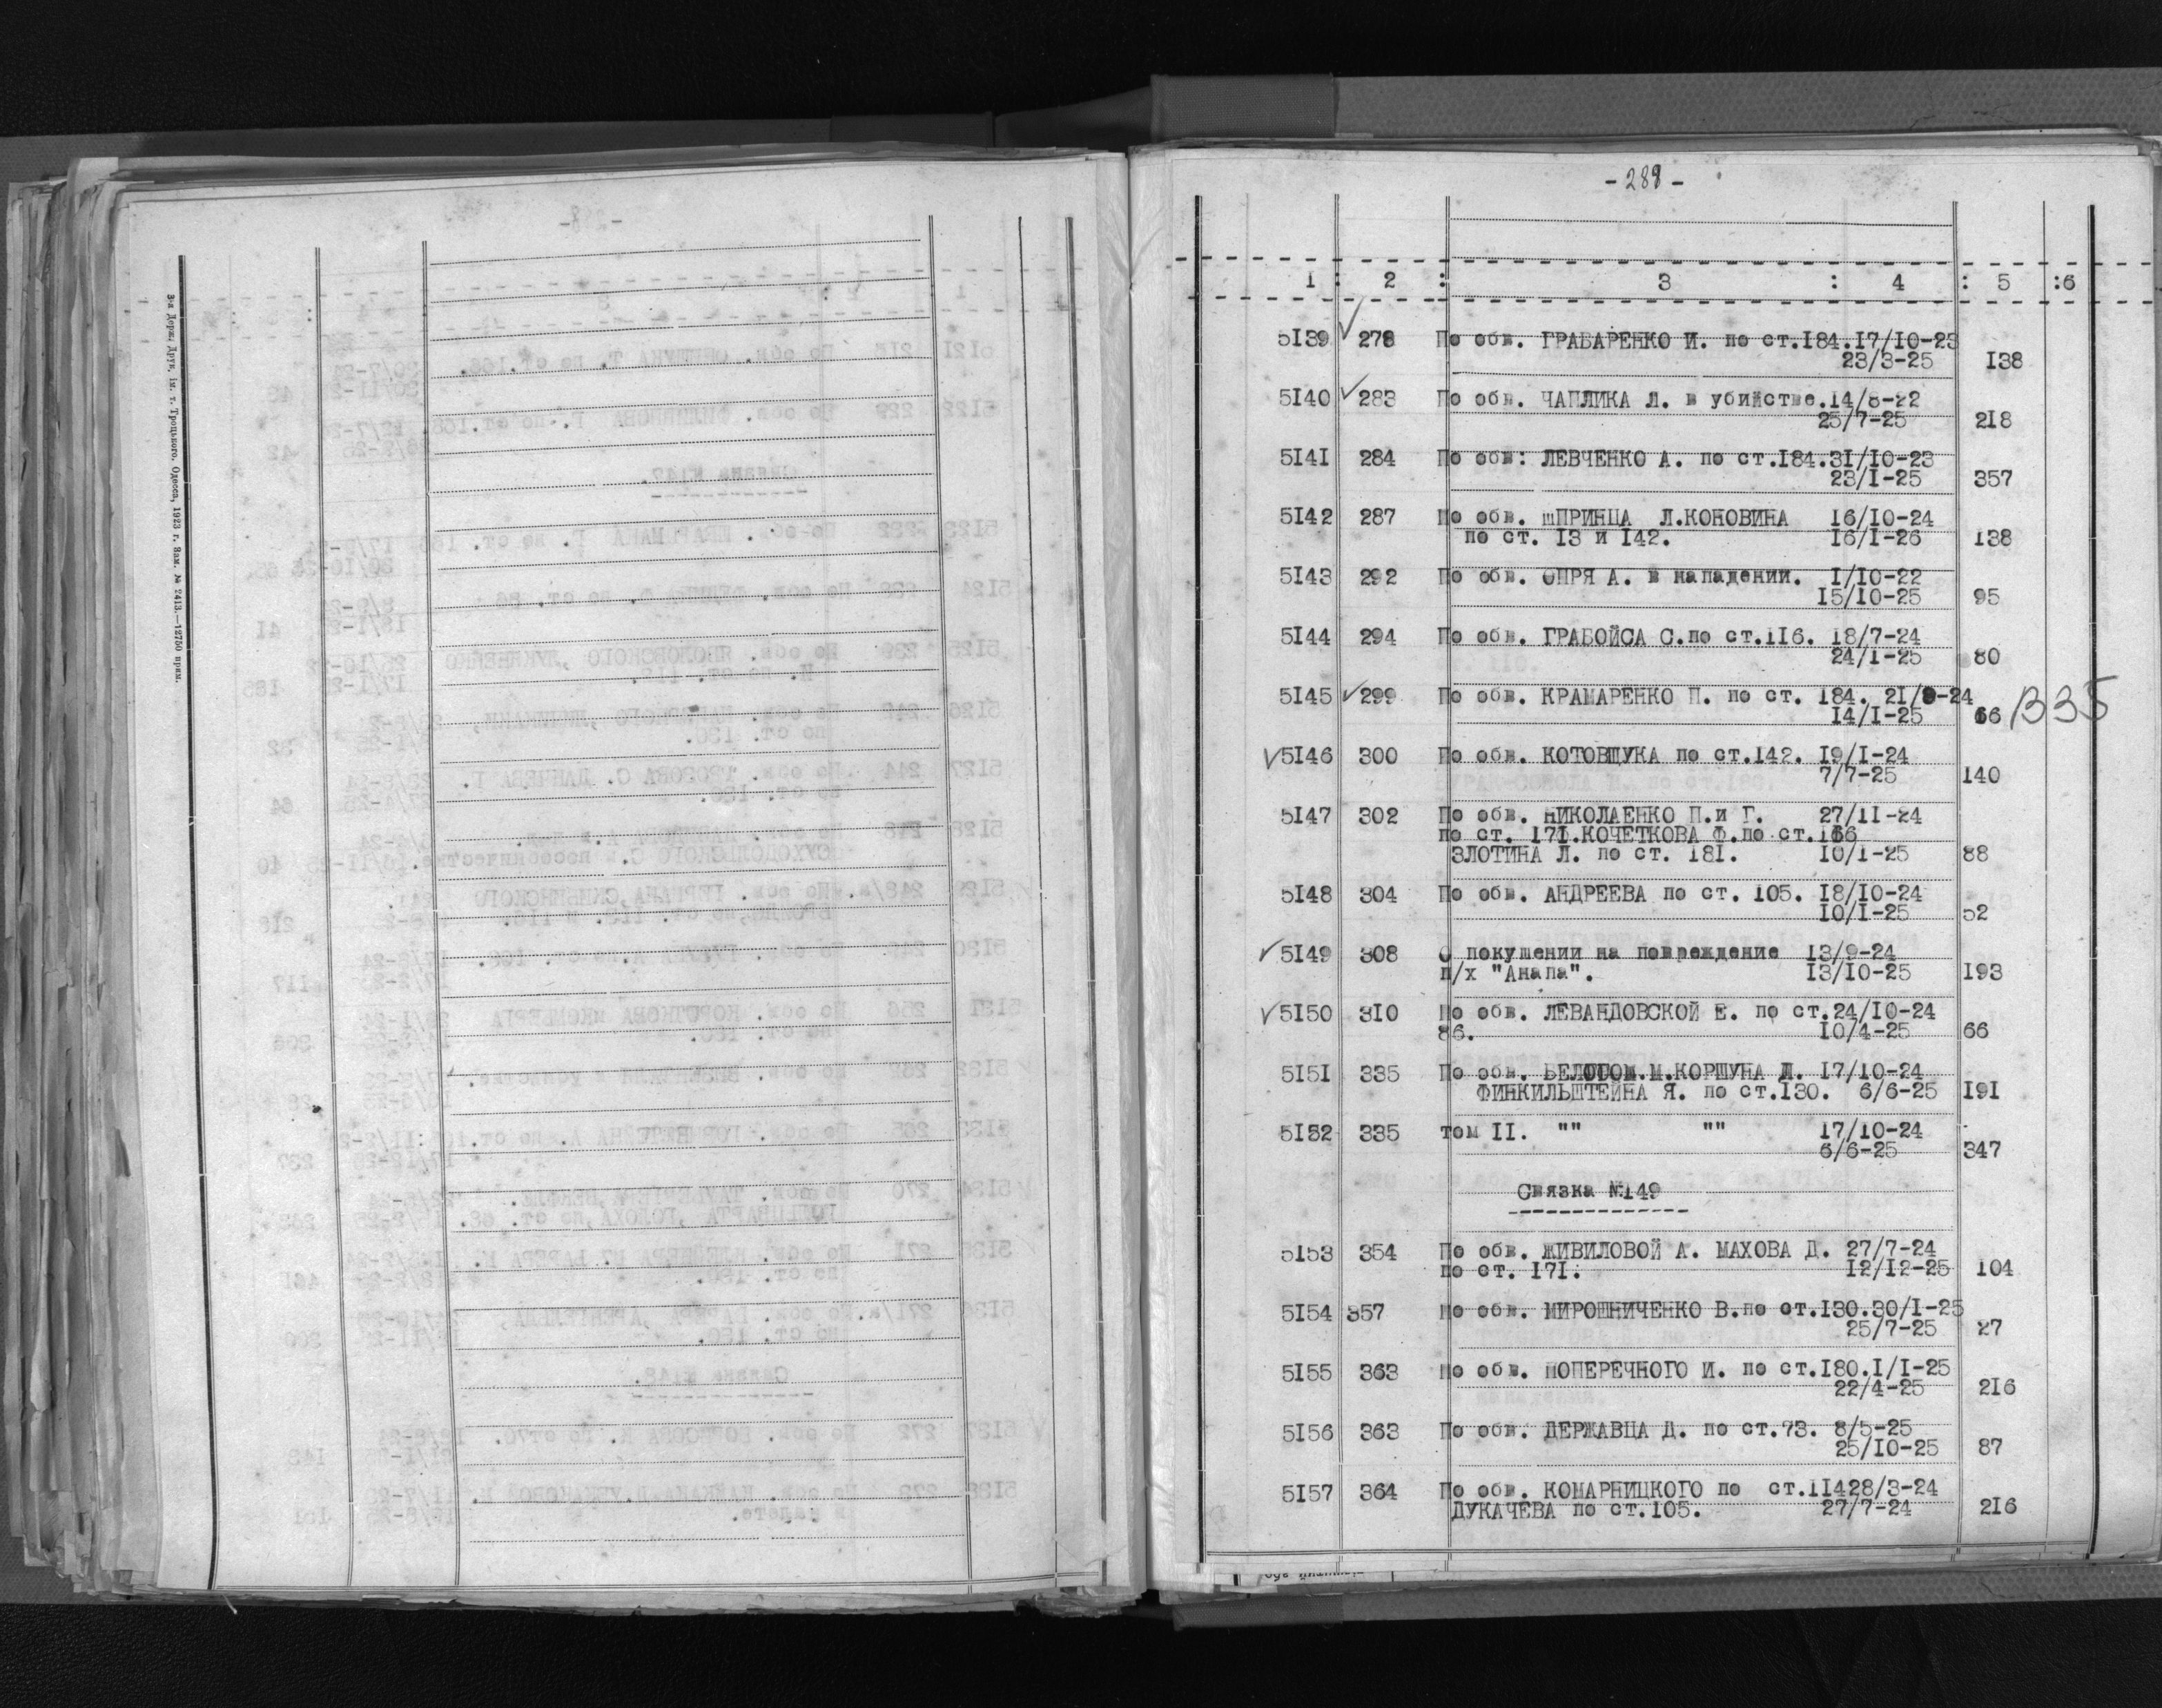 3-я Держ. Друк. ім. т. Троцького. Одесса, 1923 г. Зам. № 2413.—12750 прим.
- 289 -
1 : 2 : 3 : 4 : 5 :6
5139 278 По обв. ГРАБАРЕНКО И. по ст.184.17/10-23
23/3-25 138
5140 283 По обв. ЧАПЛИКА Л. в убийстве.14/8-22
25/7-25 218
5141 284 По обв: ЛЕВЧЕНКО А. по ст.184.31/10-23
23/1-25 357
5142 287 По обв. шПРИНЦА Л.КОНОВИНА 16/10-24
по ст. 13 и 142. 16/1-26 138
5143 292 По обв. ОПРЯ А. в нападении. 1/10-22
15/10-25 95
5144 294 По обв. ГРАБОЙСА С.по ст.116. 18/7-24
24/1-25 80
5145 299 По обв. КРАМАРЕНКО П. по ст. 184. 21/9-24
14/1-25 66 1335
5146 300 По обв. КОТОВЩУКА по ст.142. 19/1-24
7/7-25 140
5147 302 По обв. НИКОЛАЕНКО П.и Г. 27/11-24
по ст. 171.КОЧЕТКОВА Ф.по ст.116
ЗЛОТИНА Л. по ст. 181. 10/1-25 88
5148 304 По обв. АНДРЕЕВА по ст. 105. 18/10-24
10/1-25 52
5149 308 О покушении на повреждение 13/9-24
п/х "Анапа". 13/10-25 193
5150 310 По обв. ЛЕВАНДОВСКОЙ Е. по ст.24/10-24
86. 10/4-25 66
5151 335 По обв. М.КОРШУНА Л. 17/10-24
ФИНКИЛЬШТЕЙНА Я. по ст.130. 6/6-25 191
5152 335 том II. "" "" 17/10-24
6/6-25 347
Связка №149
5153 354 По обв. ЖИВИЛОВОЙ А. МАХОВА Д. 27/7-24
по ст. 171. 12/12-25 104
5154 357 по обв. МИРОШНИЧЕНКО В.по ст.130.30/1-25
25/7-25 27
5155 363 по обв. ПОПЕРЕЧНОГО И. по ст.180.1/1-25
22/4-25 216
5156 363 По обв. ДЕРЖАВЦА Д. по ст.73. 8/5-25
25/10-25 87
5157 364 По обв. КОМАРНИЦКОГО по ст.11428/3-24
ДУКАЧЕВА по ст.105. 27/7-24 216